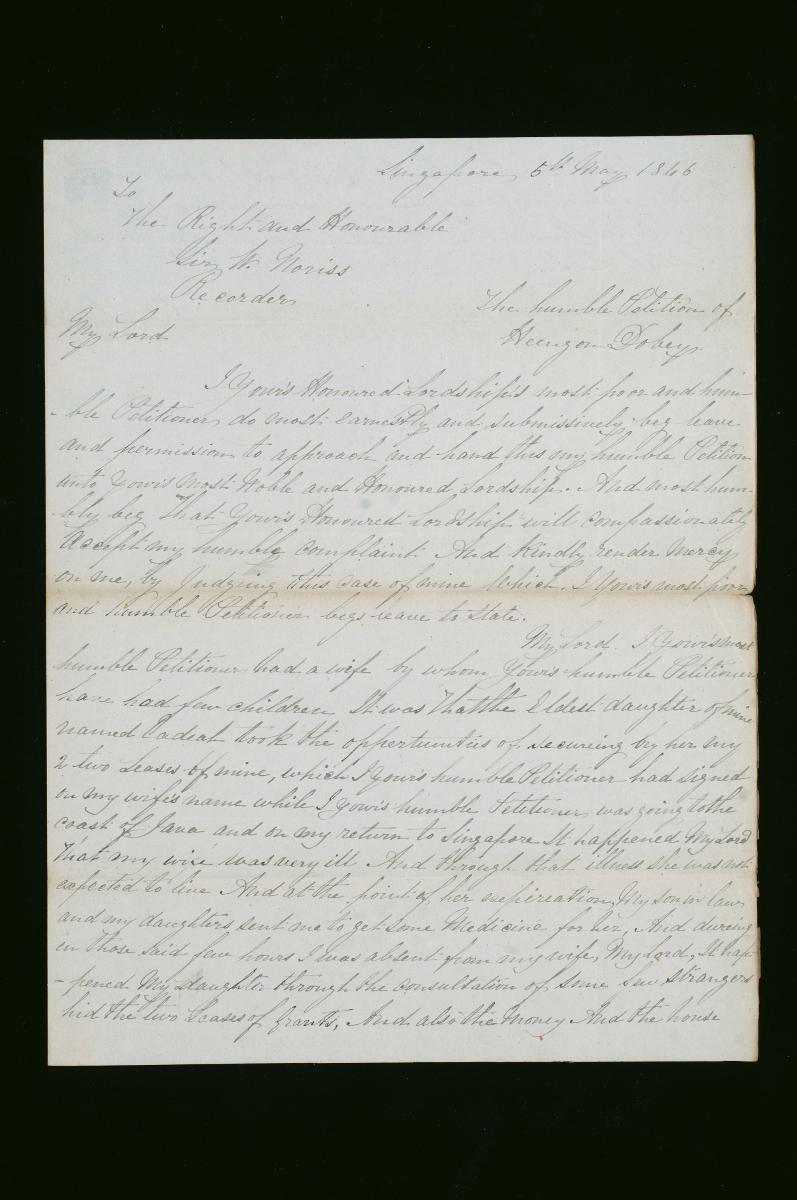 Singapore 5th May 1846
To
The Right and Honourable
Sir W. Noriss
Recorder
The humble Petition of
My Lord
Dobey
I Your's Honoured Lordship's most poor and hum-
-ble Petitioner do most earnestly and submissively beg leave
and permission to approach and hand this my humble Petition
unto Your's most Noble and Honoured Lordship. And most hum-
bly beg that Your's Honoured Lordship will compassionately
Accept my humble complaint And kindly render Mercy
on me, by Judgeing this case of mine Which I Your's most poor
and humble Petitioner begs leave to state.
My Lord. I Your's most
humble Petitioner had a wife by whom Your's humble Petitioner
have had few children It was that the Eldest daughter of mine
named took the oppertunitiis of secureing by her my
2 two Leases of mine, which I Your's humble Petitioner had signed
on my wife's name while I Your's humble Petitioner was going to the
coast of Java and on my return to Singapore It happened My Lord
That my wife was very ill And through that illness she was not
expected to live And at the point of her My son in law
and my daughters sent me to get some Medicine for her, And dureing
in those said few hours I was absent from my wife, My Lord, It hap-
-pened My daughter through the consultation of some few strangers
hid the two Leases of grants, And also the Money And the house